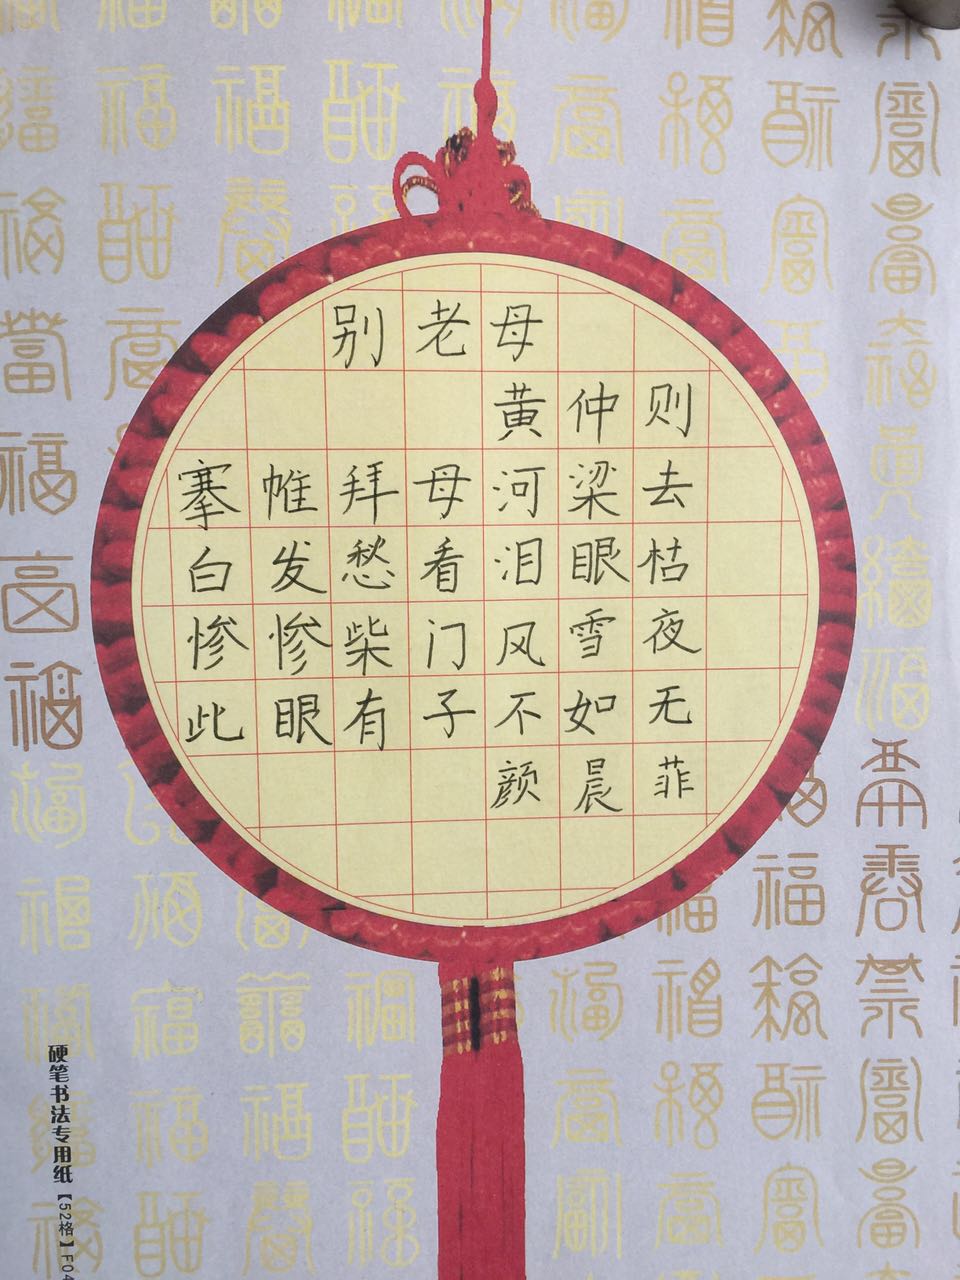 别老母
黄仲则
搴帷拜母河梁去
白发愁看泪眼枯
惨惨柴门风雪夜
此眼有子不如无
颜晨菲
硬笔书法专用纸【52格】F04